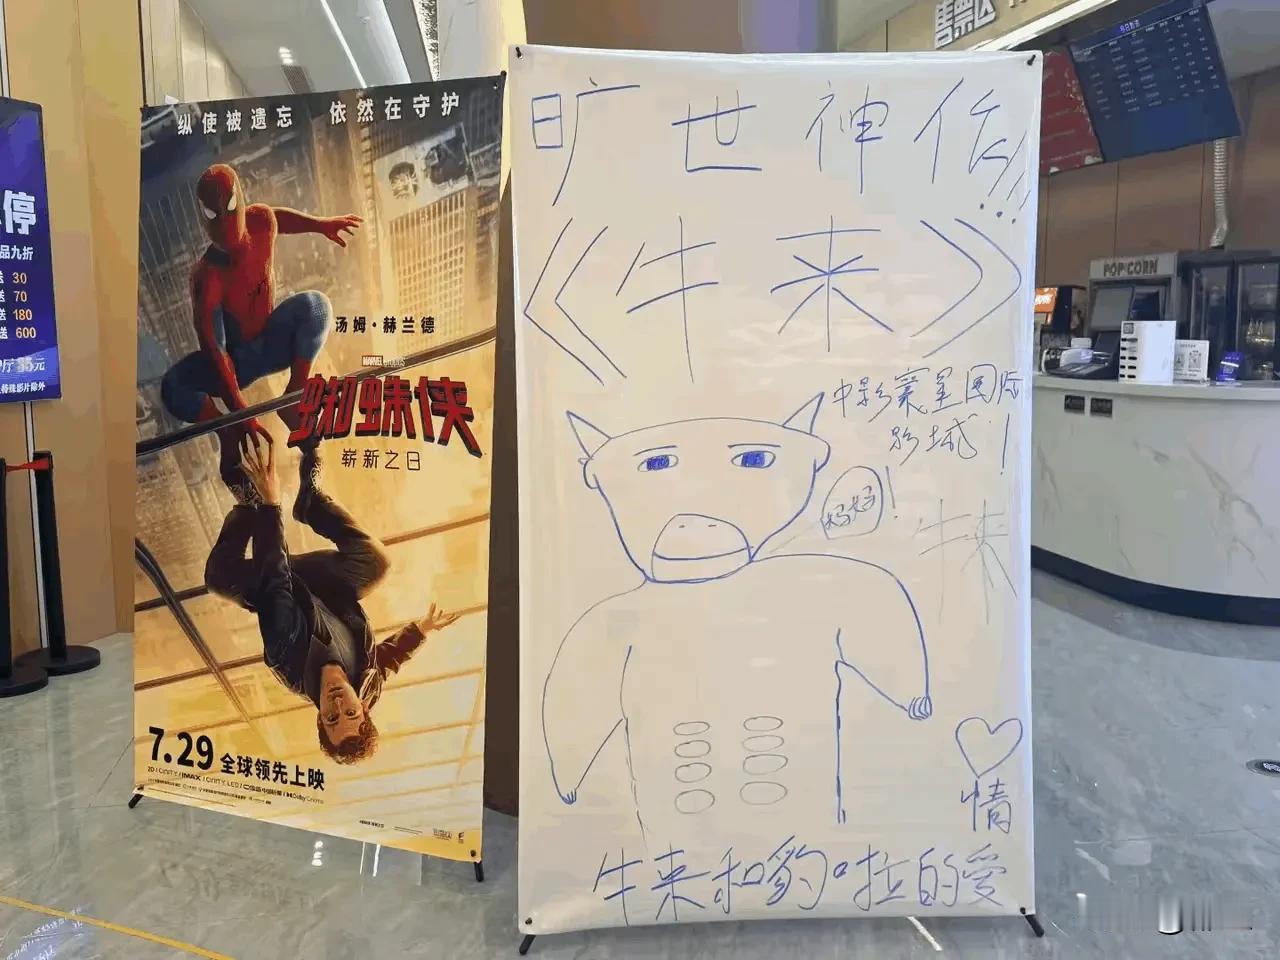 纵使被遗忘 依然在守护
汤姆·赫兰德
MARVEL STUDIOS
蜘蛛侠
崭新之日
7.29 全球领先上映
旷世神作!!!
《牛来》
中影寰星国际
影城!
妈妈!
牛来
情
牛来和豹口拉的爱
停
品九折
送 30
送 70
送 180
送 600
厅 35元
售票区
今日影讯
POPCORN